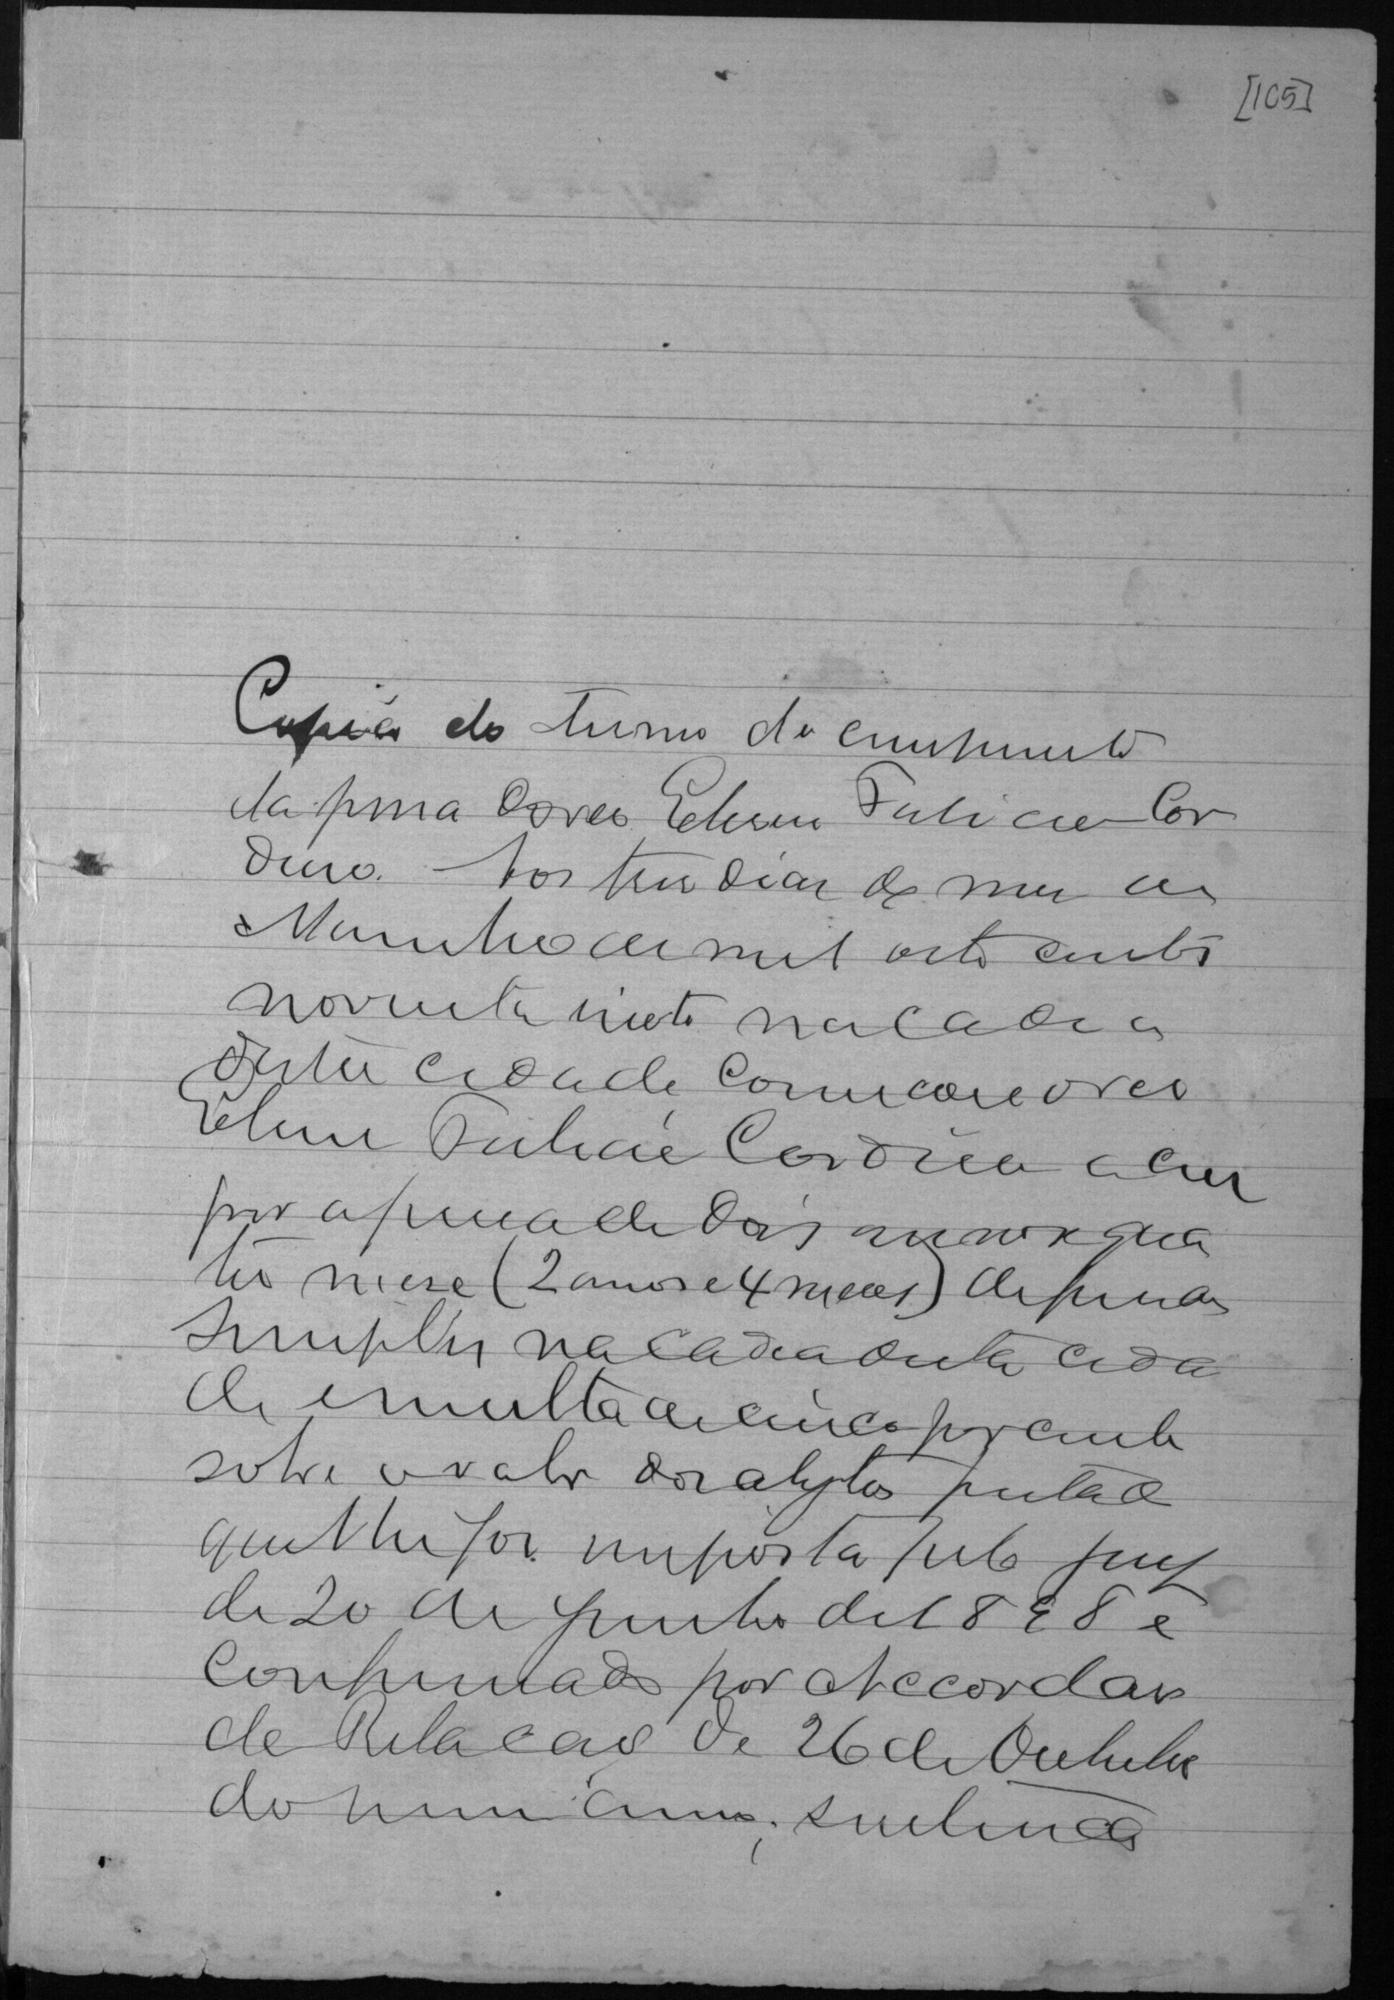 [105]
Copia do termo de cumprimento
da pena do reo Felicio Cor
deiro. Aos tres dias do mez de
Março de mil oito centos
noventa e oito na cadea
desta cidade começou o reo
Felicio Cordeiro a cum
prir a pena de dois annos e qua
tro meses (2 annos e 4 meses) de prisão
simples na cadea desta cida
de e multa de cinco por cento
sobre o valor dos objectos furtado
que lhe foi imposta pelo jury
de 20 de junho de 1898 e
confirmado por Accordão
de Relação de 26 de Outubro
do mesmo anno; sentença